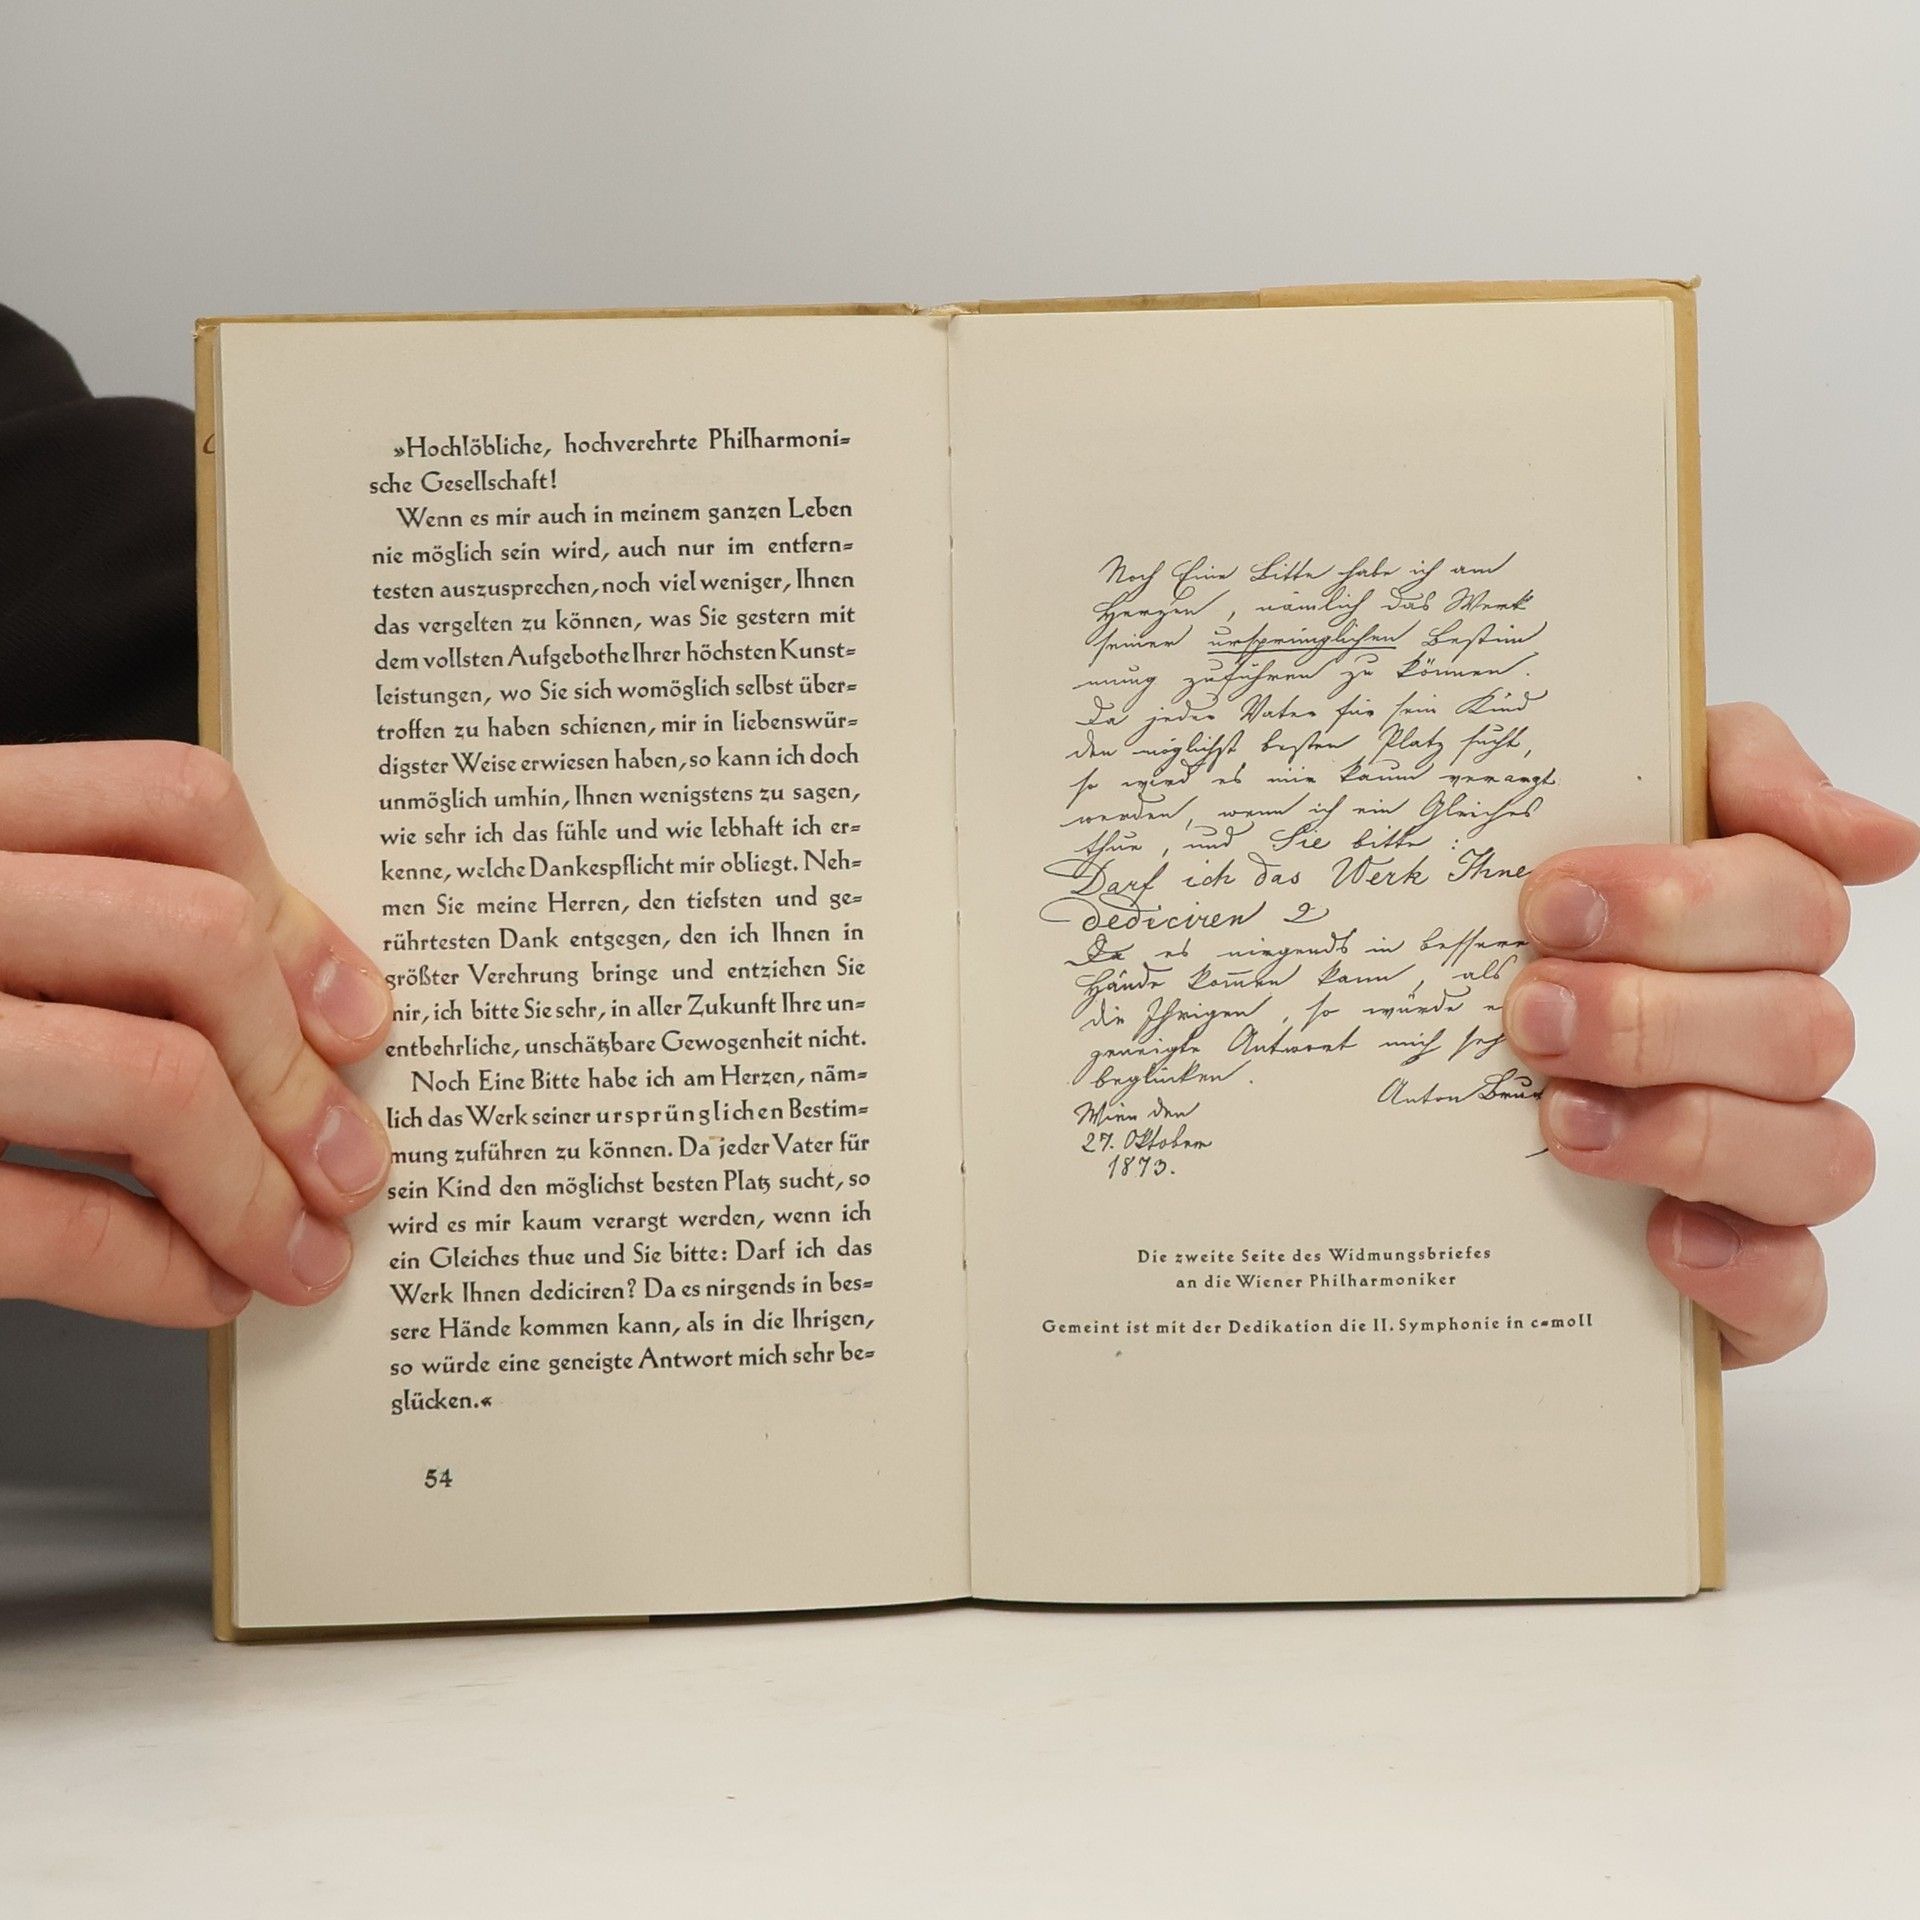 »Hochlöbliche, hochverehrte Philharmoni=
sche Gesellschaft!
Wenn es mir auch in meinem ganzen Leben
nie möglich sein wird, auch nur im entfern=
testen auszusprechen, noch viel weniger, Ihnen
das vergelten zu können, was Sie gestern mit
dem vollsten Aufgebothe Ihrer höchsten Kunst=
leistungen, wo Sie sich womöglich selbst über=
troffen zu haben schienen, mir in liebenswür=
digster Weise erwiesen haben, so kann ich doch
unmöglich umhin, Ihnen wenigstens zu sagen,
wie sehr ich das fühle und wie lebhaft ich er=
kenne, welche Dankespflicht mir obliegt. Neh=
men Sie meine Herren, den tiefsten und ge=
rührtesten Dank entgegen, den ich Ihnen in
größter Verehrung bringe und entziehen Sie
mir, ich bitte Sie sehr, in aller Zukunft Ihre un=
entbehrliche, unschätzbare Gewogenheit nicht.
Noch Eine Bitte habe ich am Herzen, näm=
lich das Werk seiner ursprünglichen Bestim=
mung zuführen zu können. Da jeder Vater für
sein Kind den möglichst besten Platz sucht, so
wird es mir kaum verargt werden, wenn ich
ein Gleiches thue und Sie bitte: Darf ich das
Werk Ihnen dediciren? Da es nirgends in bes=
sere Hände kommen kann, als in die Ihrigen,
so würde eine geneigte Antwort mich sehr be=
glücken.«
54
Noch Eine Bitte habe ich am
Herzen, nämlich das Werk
seiner ursprünglichen Bestim
mung zuführen zu können.
Da jeder Vater für sein Kind
den möglichst besten Platz sucht,
so wird es mir kaum verargt
werden, wenn ich ein Gleiches
thue, und Sie bitte:
Darf ich das Werk Ihne
dediciren?
Da es nirgends in bessere
Hände kommen kann, als
die Ihrigen, so würde e
geneigte Antwort mich seh
beglücken.
Anton Bruc
Wien den
27. Oktober
1873.
Die zweite Seite des Widmungsbriefes
an die Wiener Philharmoniker
Gemeint ist mit der Dedikation die II. Symphonie in c=moll